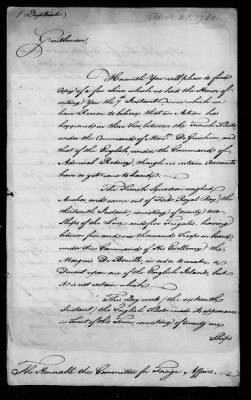 (Duplicate)
Gentlemen,
Herewith You will please to find
Copy of a few Lines which we had the Honor of
writing You the 7th Instant since which we
have Reason to believe that an Action has
happened on these Seas between the French Fleet
under the Command of Monsr De Guichen, and
that of the English, under the Command of
Admiral Rodney, though no certain Accounts
have as yet come to hand.
The French Squadron weighed
Anchor, and came out of Fort Royal Bay, the
thirteenth Instant, consisting of twenty two
Ships of the Line, and five Frigates, having
between five and six thousand Troops on board
under the Command of His Excellency the
Marquis De Bouille, in order to make a
Descent upon one of the English Islands, but
it is not certain which.
This Day week (the sixteenth
Instant) the English Fleet made its appearance
in Sight of this Town, consisting of twenty one
Ships
The Honorable the Committee for Foreign Affairs.